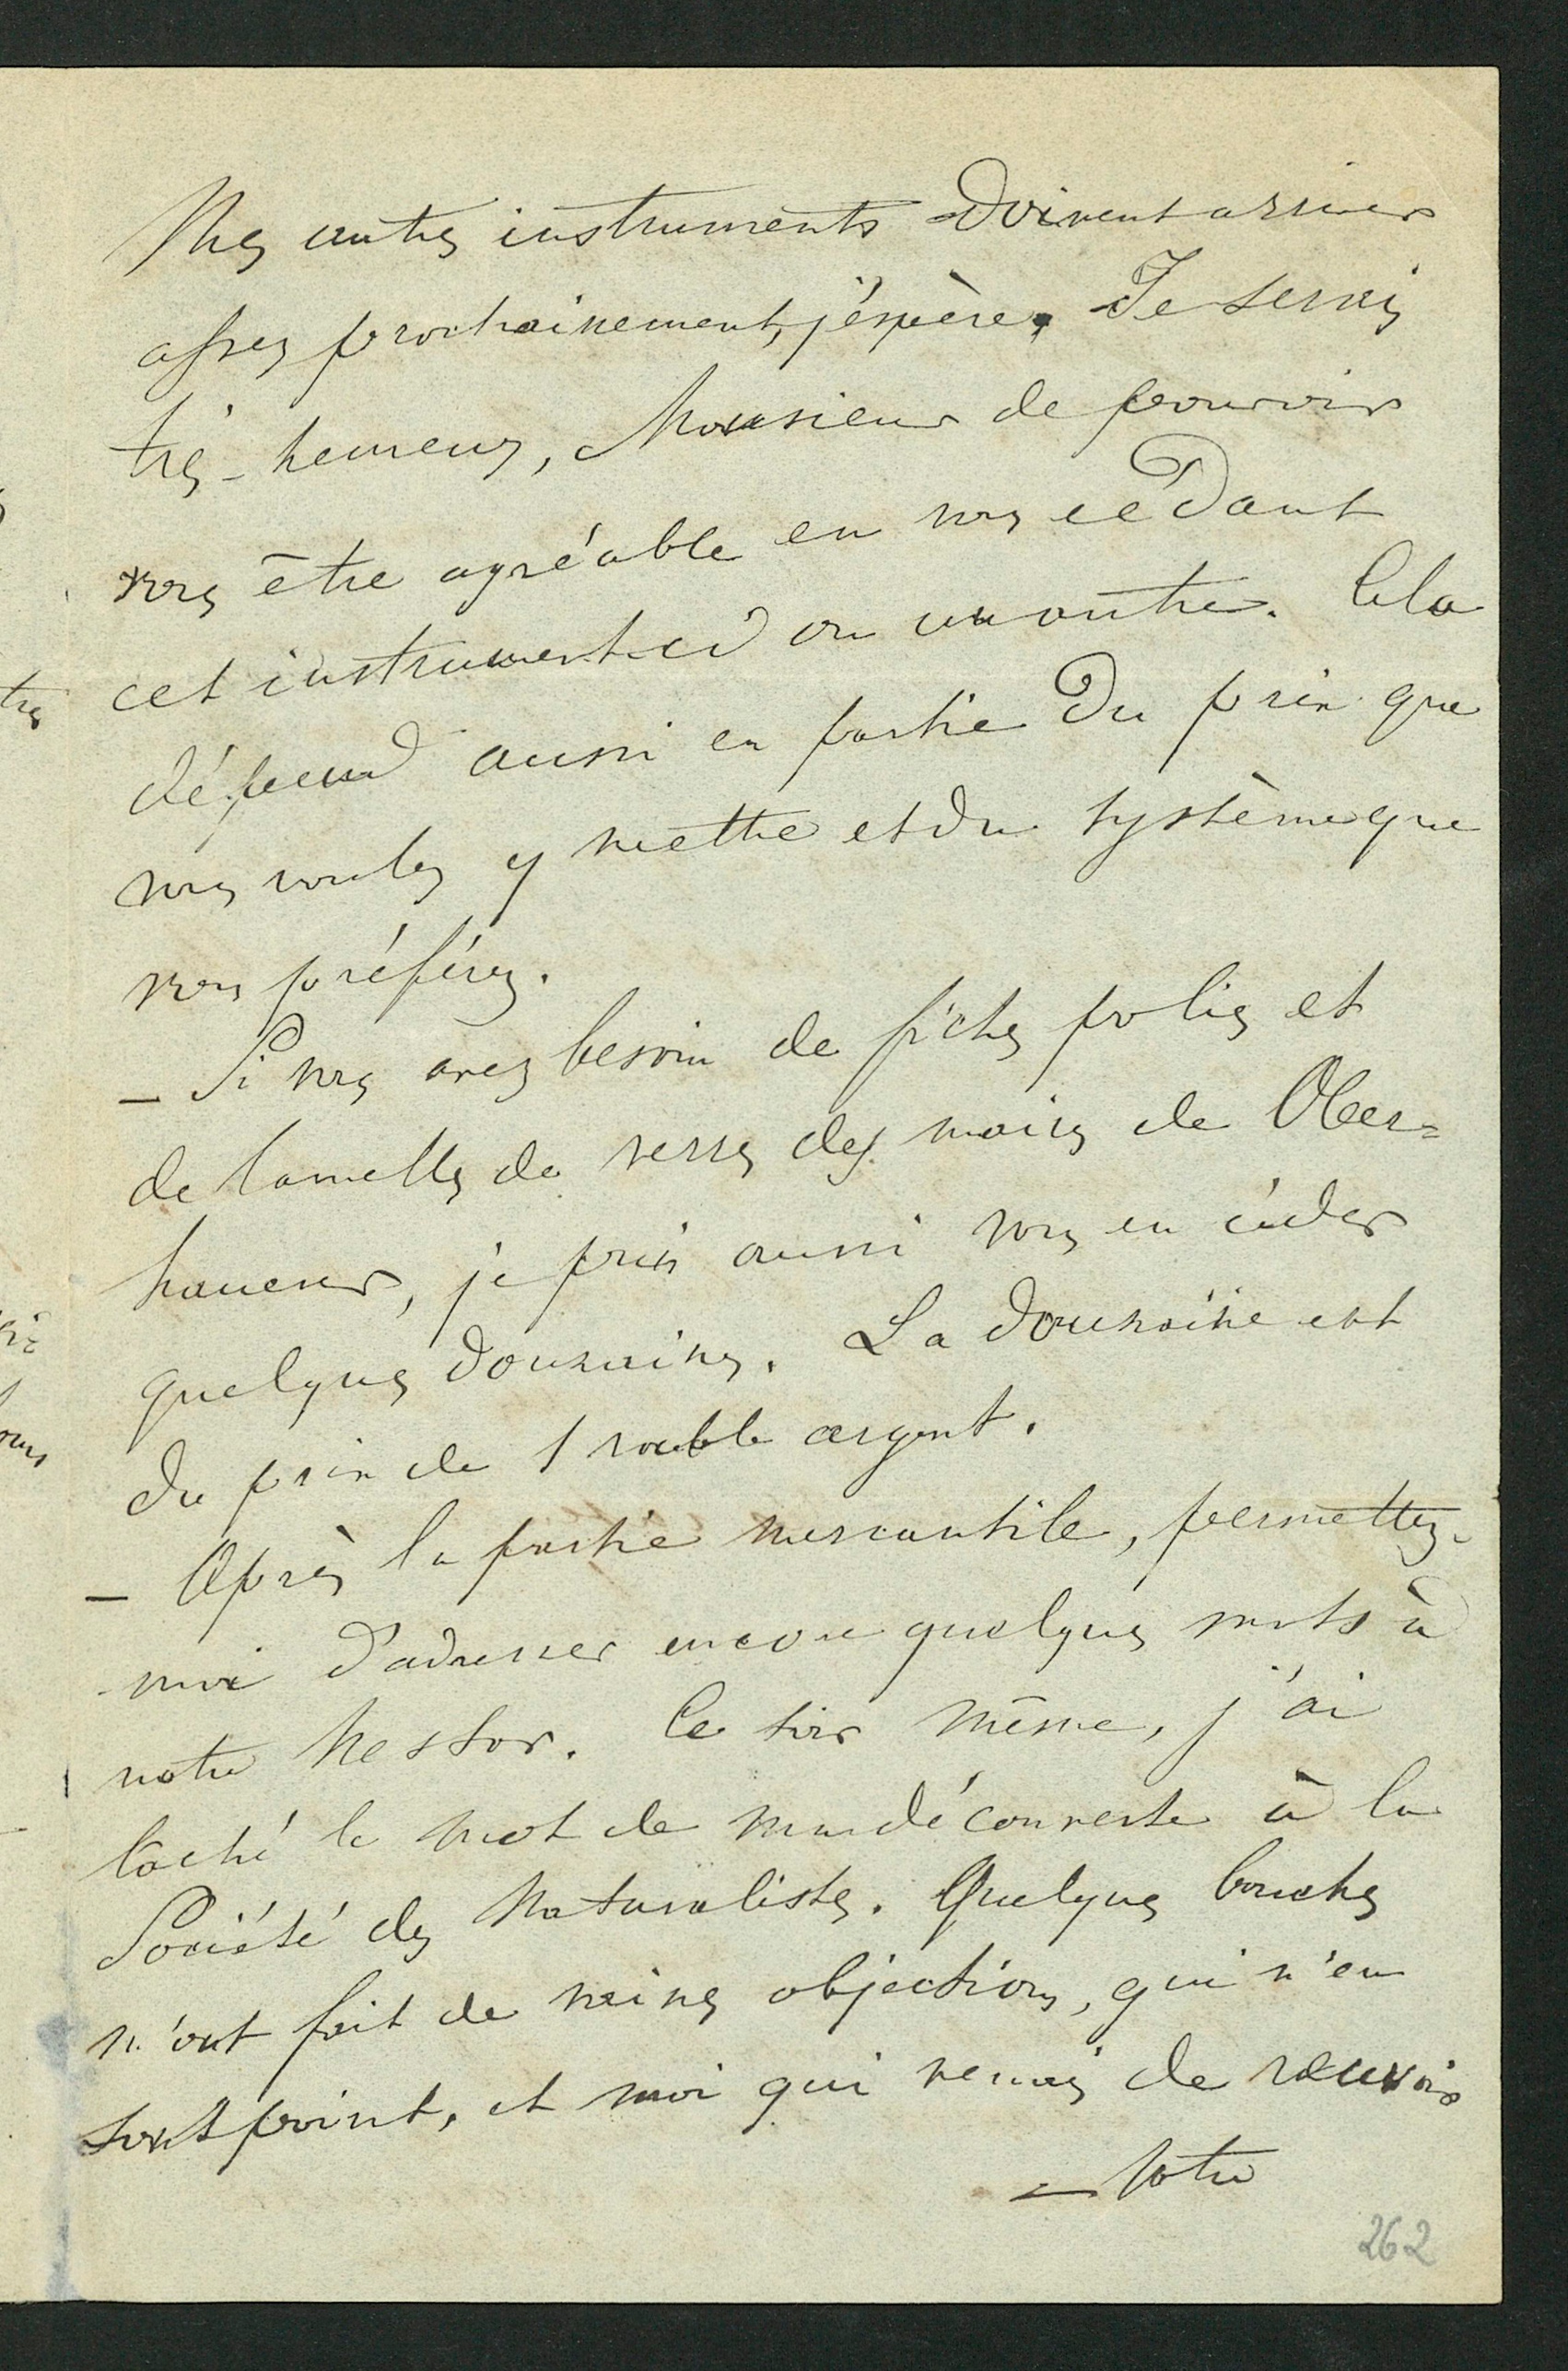 Mes autres instruments doivent arriver
assez prochainement, j'éspère. Je serais
très-heureux, Monsieur de pouvoir
vous être agréable en vous cédant
cet instrument-ci ou un autre. Cela
dépend aussi en partie du prix que
vous voulez y mettre et du système que
vous préférez.
– Si vous avez besoin de fiches polies et
de lamelles de verres des mains de Ober=
hauser, je puis aussi vous en céder
quelques douzaines. La douzaine est
du prix de 1 rouble argent.
– Après la partie mercantile, permettez-
moi d'adresser encore quelques mots à
notre Nestor. Ce soir même, j'ai
laché le mot de ma découverte à la
Société des Naturalistes. Quelques bouches
m'ont fait de vaines objections, qui n'en
sont point, et moi qui venais de recevoir
– Votre
262
tres